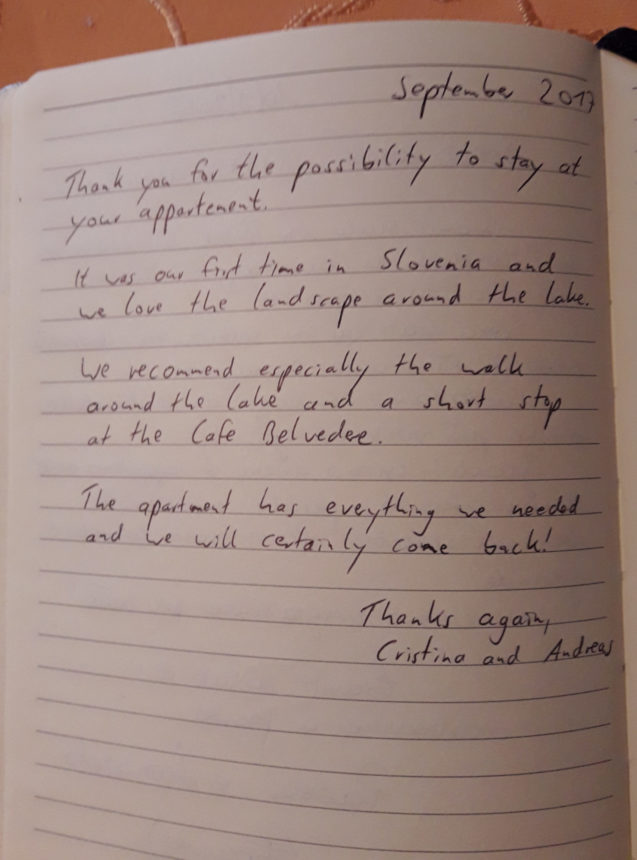 September 2017
Thank you for the possibility to stay at
your appartement.
It was our first time in Slovenia and
we love the landscape around the lake.
We recommend especially the walk
around the lake and a short stop
at the Cafe Belvedere.
The apartment has everything we needed
and we will certainly come back!
Thanks again,
Cristina and Andreas